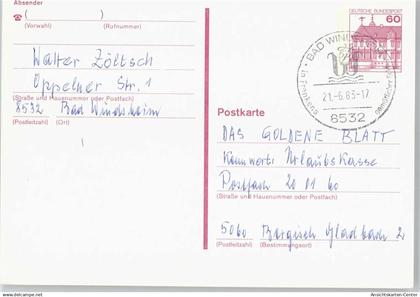 Absender
☎ (        )
(Vorwahl) (Rufnummer)
Walter Zöltsch
Oppelner Str. 1
(Straße und Hausnummer oder Postfach)
8532 Bad Windsheim
(Postleitzahl) (Ort)
DEUTSCHE BUNDESPOST
60
BAD WINDSHEIM
21.-6.83-17
8532
Postkarte
DAS GOLDENE BLATT
Kennwort: Urlaubskasse
Postfach 20 01 60
(Straße und Hausnummer oder Postfach)
5060 Bergisch Gladbach 2
(Postleitzahl) (Bestimmungsort)
Ansichtskarten-Center